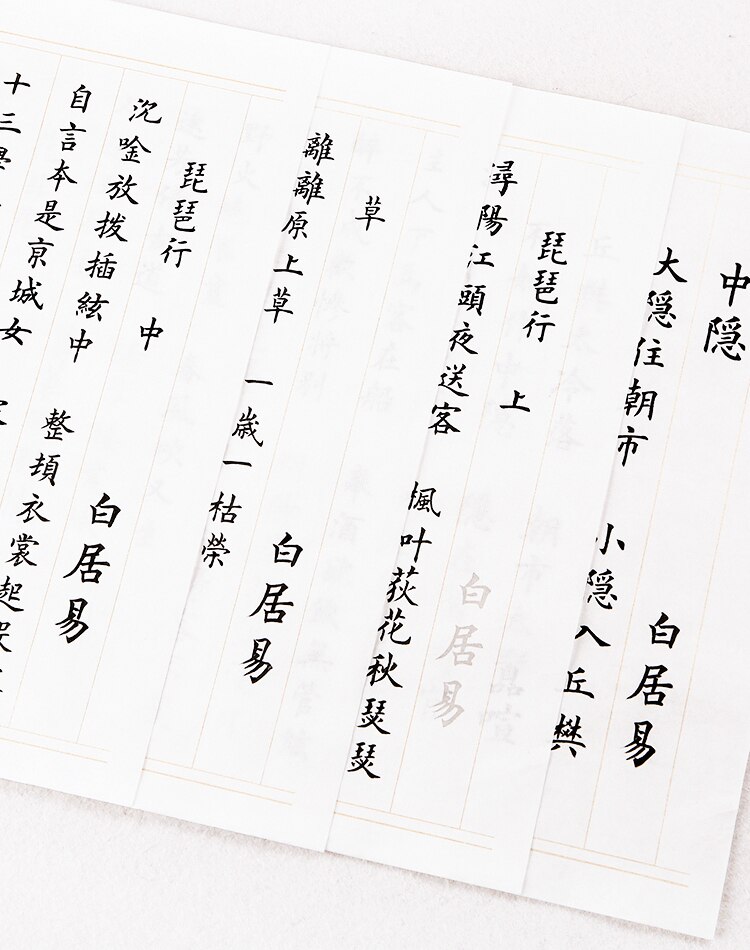 中隐 白居易
大隐住朝市 小隐入丘樊
琵琶行 上 白居易
潯陽江頭夜送客 楓叶荻花秋瑟瑟
草 白居易
離離原上草 一歳一枯榮
琵琶行 中 白居易
沉唫放拨插絃中 整頓衣裳起
自言本是京城女
十三學